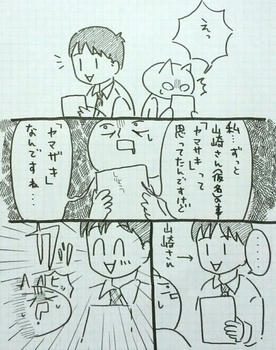 えっ
私…ずっと
山崎さん(仮名)の事
「ヤマザキ」って
思ってたんですけど
「ヤマサキ」
なんですね…
……
山崎さん